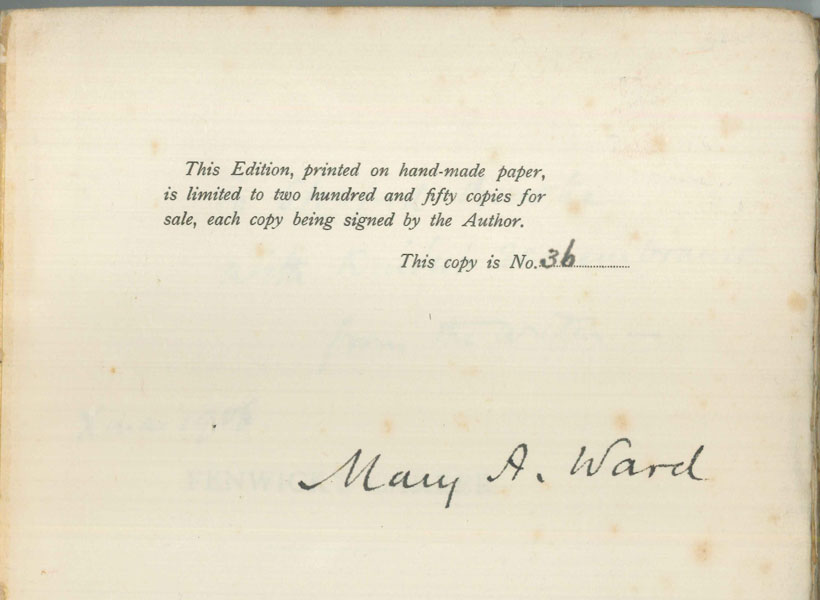 This Edition, printed on hand-made paper,
is limited to two hundred and fifty copies for
sale, each copy being signed by the Author.
This copy is No. 36
Mary A. Ward